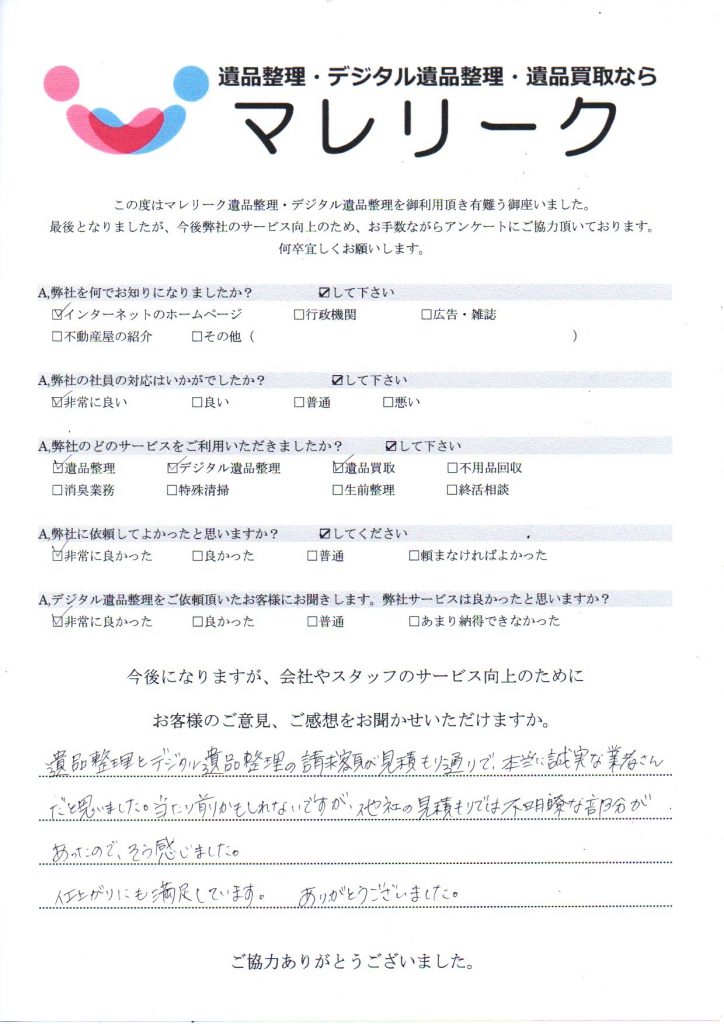 遺品整理・デジタル遺品整理・遺品買取なら
マレリーク
この度はマレリーク遺品整理・デジタル遺品整理を御利用頂き有難う御座いました。
最後となりましたが、今後弊社のサービス向上のため、お手数ながらアンケートにご協力頂いております。
何卒宜しくお願いします。
A,弊社を何でお知りになりましたか？ ☑して下さい
☑インターネットのホームページ □行政機関 □広告・雑誌
□不動産屋の紹介 □その他（ ）
A,弊社の社員の対応はいかがでしたか？ ☑して下さい
☑非常に良い □良い □普通 □悪い
A,弊社のどのサービスをご利用いただきましたか？ ☑して下さい
☑遺品整理 ☑デジタル遺品整理 ☑遺品買取 □不用品回収
□消臭業務 □特殊清掃 □生前整理 □終活相談
A,弊社に依頼してよかったと思いますか？ ☑してください
☑非常に良かった □良かった □普通 □頼まなければよかった
A,デジタル遺品整理をご依頼頂いたお客様にお聞きします。弊社サービスは良かったと思いますか？
☑非常に良かった □良かった □普通 □あまり納得できなかった
今後になりますが、会社やスタッフのサービス向上のために
お客様のご意見、ご感想をお聞かせいただけますか。
遺品整理とデジタル遺品整理の請求額が見積もり通りで、本当に誠実な業者さん
だと思いました。当たり前かもしれないですが、他社の見積もりでは不明瞭な部分が
あったので、そう感じました。
仕上がりにも満足しています。 ありがとうございました。
ご協力ありがとうございました。